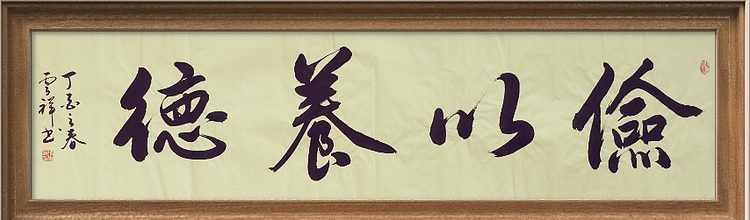 儉以養德
丁酉之春
雲祥書